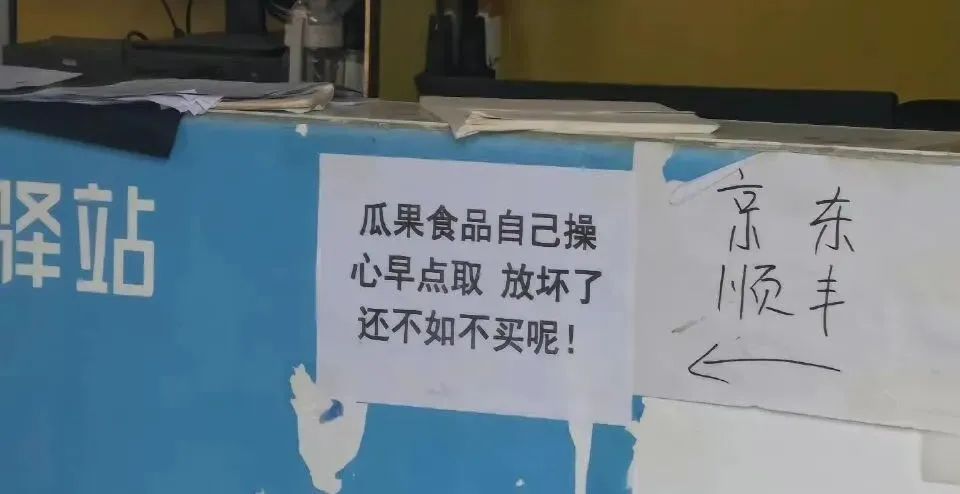 驿站
瓜果食品自己操
心早点取 放坏了
还不如不买呢！
京东
顺丰